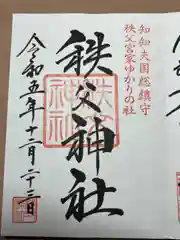 知知夫国総鎮守
秩父宮家ゆかりの社
秩父神社
令和五年十二月二十三日